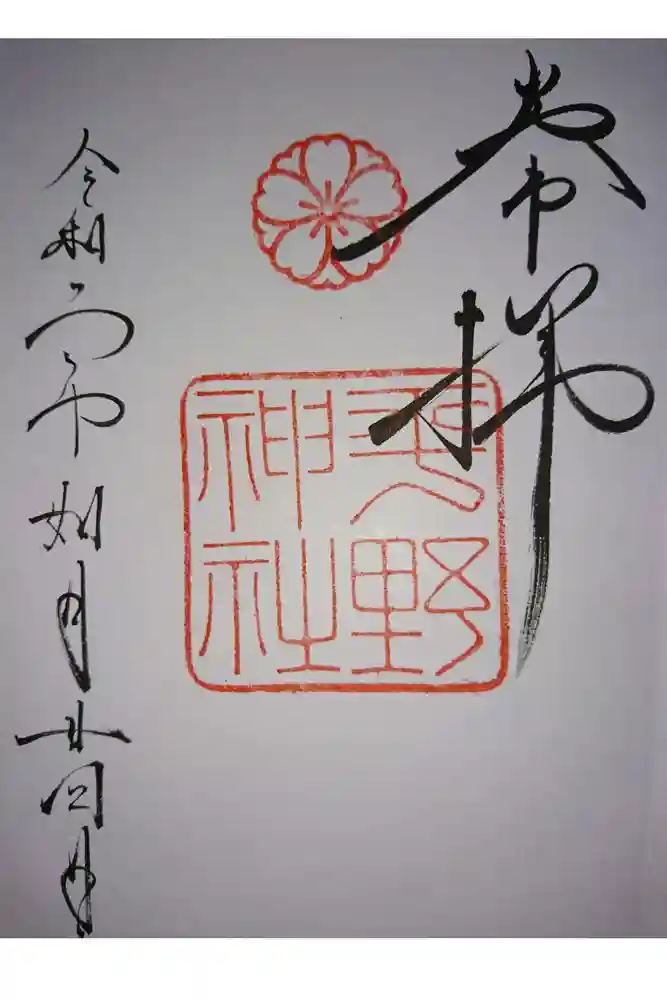 奉拝
平野神社
令和六年如月廿四日